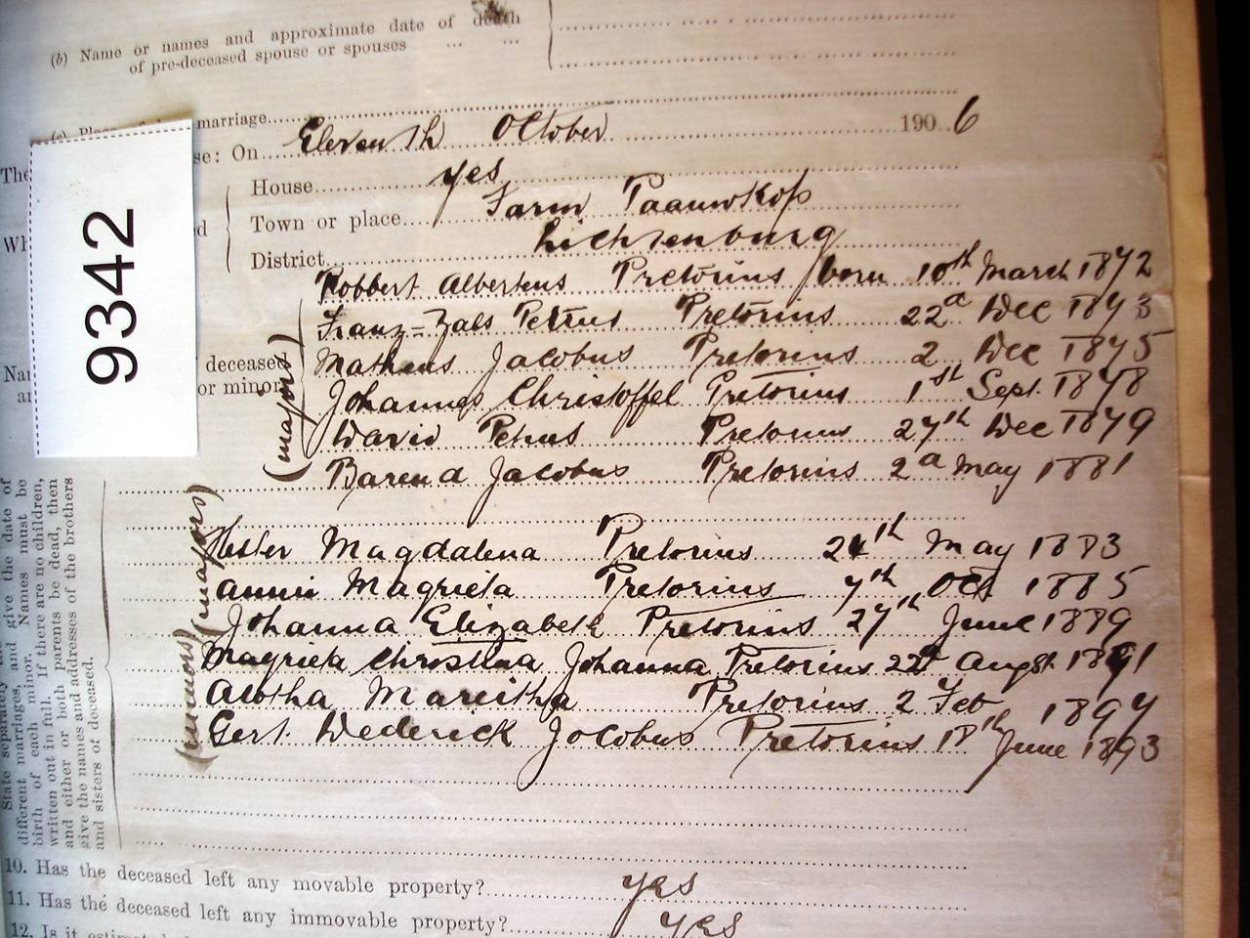 (b) Name or names and approximate date of death
of pre-deceased spouse or spouses ... ...
marriage
se: On Eleventh October 1906
House yes
Town or place Farm Paauwkop
District Lichtenburg
Robbert Albertus Pretorius born 10th March 1872
Petrus Pretorius 22d Dec 1873
Matheus Jacobus Pretorius 2 Dec 1875
Johannes Christoffel Pretorius 1st Sept. 1878
David Petrus Pretorius 27th Dec 1879
Barend Jacobus Pretorius 2d May 1881
(majors)
deceased
or minor
9342
Hester Magdalena Pretorius 24th May 1883
Annie Magrieta Pretorius 7th Oct 1885
Johanna Elizabeth Pretorius 27th June 1889
Magrieta Christina Johanna Pretorius 22d Augst 1891
Pretorius 2 Feb 1894
Gert Diederick Jacobus Pretorius 18th June 1893
(majors)
(minors)
State separately
different marriages, and give the date of
birth of each minor. Names must be
written out in full. If there are no children,
and either or both parents be dead, then
give the names and addresses of the brothers
and sisters of deceased.
10. Has the deceased left any movable property? yes
11. Has the deceased left any immovable property? yes
12. Is it